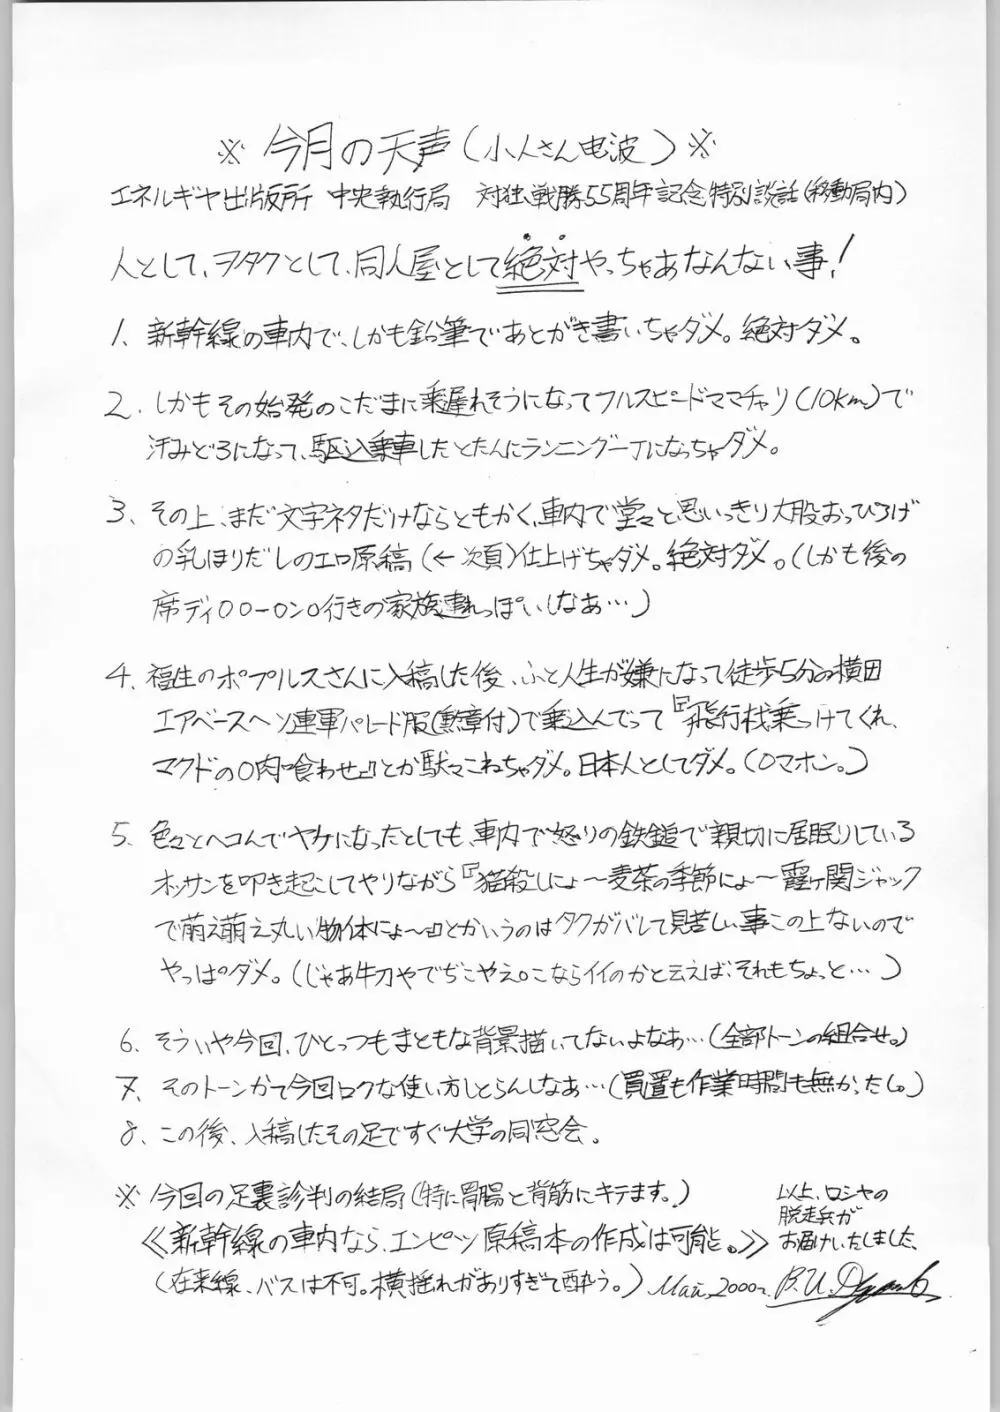 ※ 今月の天声(小人さん电波) ※
エネルギヤ出版所 中央執行局 対独戦勝55周年記念特別談話(移動局内)
人として、ヲタクとして、同人屋として絶対やっちゃあなんない事!
1、新幹線の車内で、しかも鉛筆であとがき書いちゃダメ。絶対ダメ。
2、しかもその始発のこだまに乗遅れそうになってフルスピードママチャリ(10km)で
汗みどろになって、駆込乗車したとたんにランニング一丁になっちゃダメ。
3、その上、まだ文字ネタだけならともかく、車内で堂々と、思いっきり大股おっぴろげ
の乳ほりだしのエロ原稿(←次頁)仕上げちゃダメ。絶対ダメ。(しかも後の
席ディ○○ー○ン○行きの家族連れっぽいしなあ…)
4、福生のポプルスさんに入稿した後、ふと人生が嫌になって徒歩5分の横田
エアベースへソ連軍パレード服(勲章付)で乗込んでって『飛行机乗っけてくれ、
マクドの○肉喰わせ』とか駄々こねちゃダメ。日本人としてダメ。(○マホン。)
5、色々とヘコんでヤケになったとしても、車内で怒りの鉄鎚で親切に居眠りしている
オッサンを叩き起こしてやりながら『猫殺しにょ〜麦茶の季節にょ〜霞ヶ関ジャック
で萌え萌え丸い物体にょ〜』とかいうのはタクがバレして見苦しい事この上ないので
やっぱダメ。(じゃあ牛刀やでぢこやえ。こならイイのかと云えば、それもちょっと…)
6、そういや今回、ひとつもまともな背景描いてないよなあ…(全部トーンの組合せ。)
7、そのトーンかて今回ロクな使い方しとらんしなあ…(買置も作業時間も無かったし。)
8、この後、入稿したその足ですぐ大学の同窓会。
※ 今回の足裏診判の結局(特に胃腸と背筋にキテます。)
≪新幹線の車内なら、エンピツ原稿本の作成は可能。≫
(在来線、バスは不可。横揺れがありすぎて酔う。)
以上、ロシヤの
脱走兵が
お届けいたしました。
Май, 2000г.